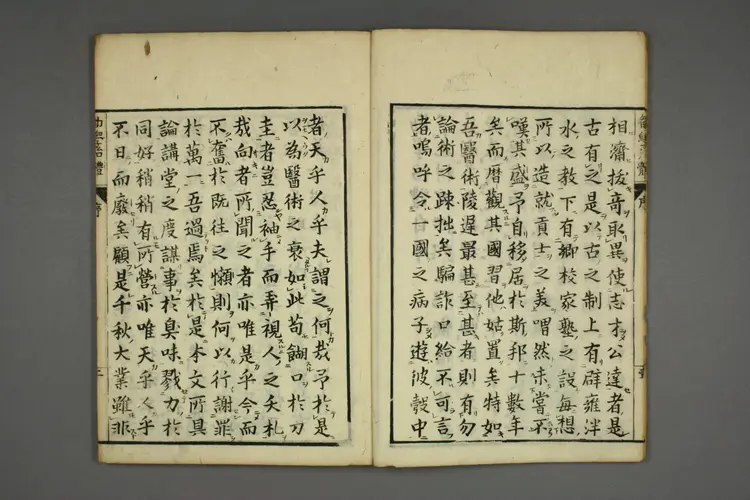 相濟拔竒取異使志才公達者是
古有之是以古之制上有辟雍泮
水之教下有鄉校家塾之設毎想
所以造就貢士之美喟然未嘗不
嘆其盛予自移居於斯邦十數年
矣而暦觀其國習他姑置矣特如
吾醫術陵遲最甚至甚者則有勿
論術之踈拙矣騙詐口給不可言
者嗚呼令一國之病子遊彼彀中
者天乎人乎夫謂之何哉予於是
以為醫術之衰如此苟餬口於刀
圭者豈忍袖手而弄視人之夭札
哉向者所聞之者亦唯是乎今而
不奮於既往之懶則何以行謝罪
於萬一吾過焉矣於是本文所具
論講堂之度謀事於臭味戮力於
同好稍稍有所營亦唯天乎人乎
不日而廢矣顧是千秋大業雖非
序